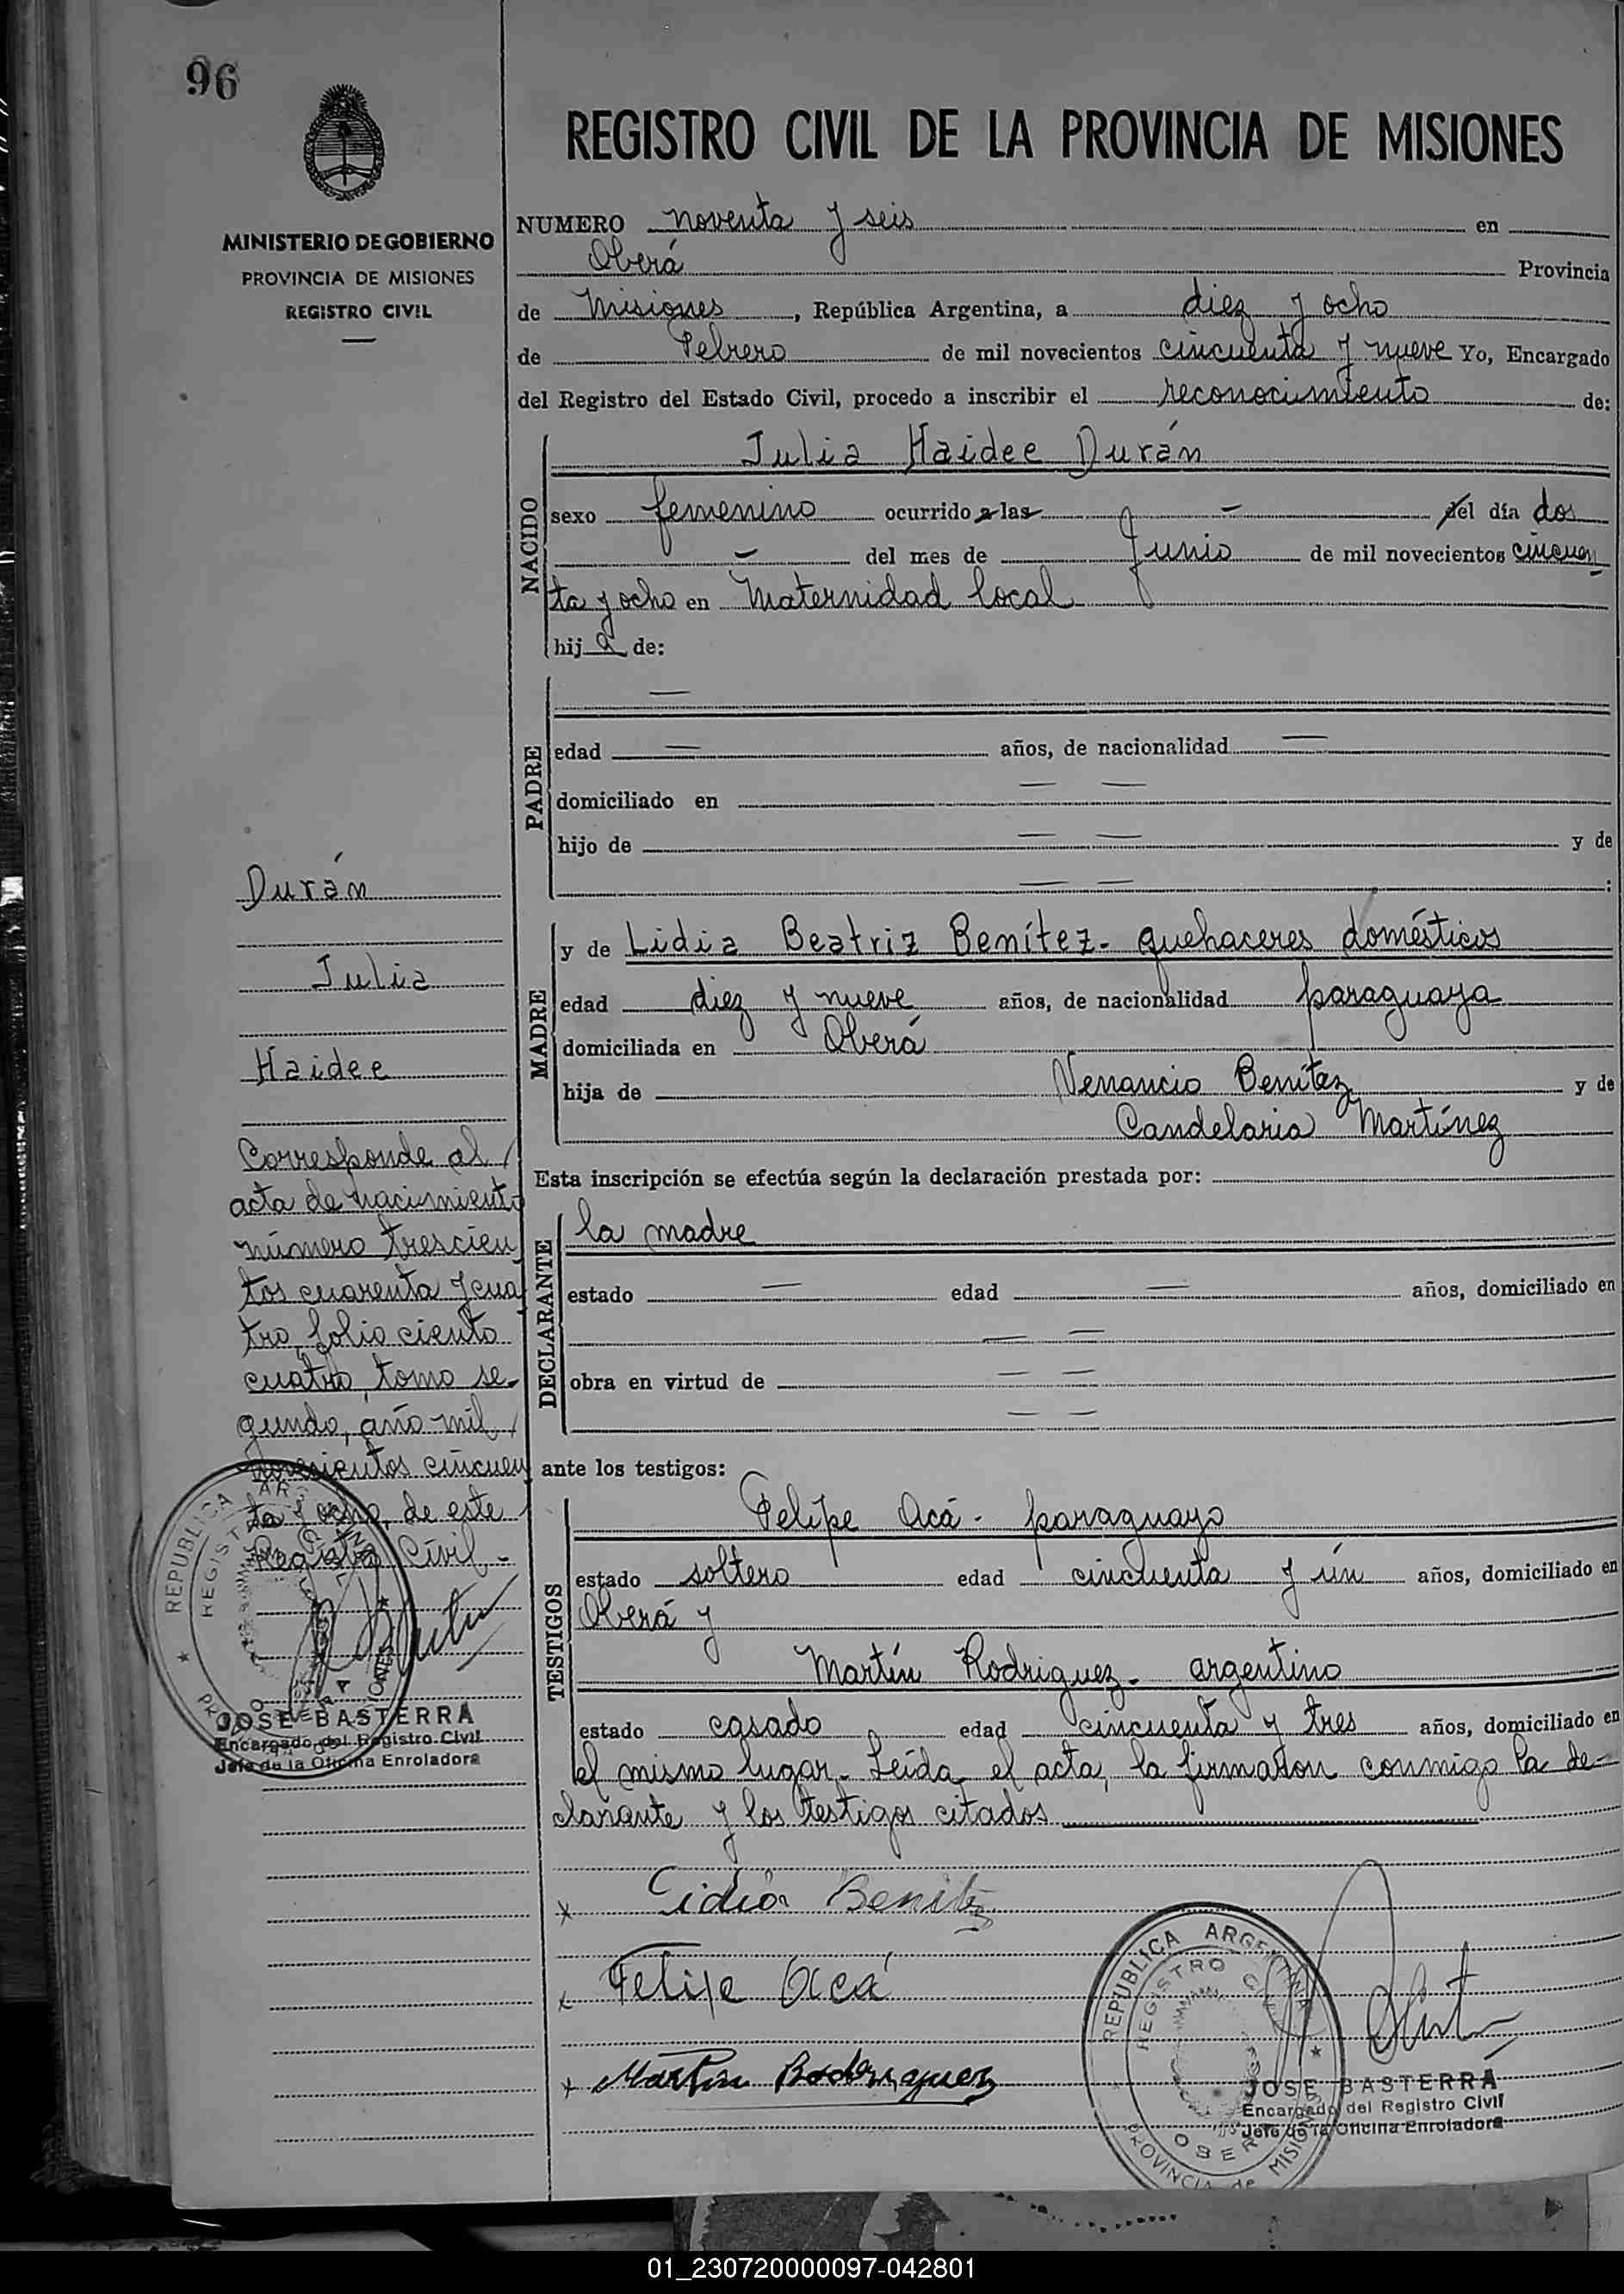 96
REGISTRO CIVIL DE LA PROVINCIA DE MISIONES
MINISTERIO DE GOBIERNO
PROVINCIA DE MISIONES
REGISTRO CIVIL
NUMERO noventa y seis en
Oberá Provincia
de Misiones, República Argentina, a diez y ocho
de Febrero de mil novecientos cincuenta y nueve Yo, Encargado
del Registro del Estado Civil, procedo a inscribir el reconocimiento de:
NACIDO
Julia Haidee Durán
sexo femenino ocurrido a las — del día dos
— del mes de Junio de mil novecientos cincuen
ta y ocho en Maternidad local
hija de:
PADRE
—
edad — años, de nacionalidad —
domiciliado en — —
hijo de — — y de
— — :
MADRE
y de Lidia Beatriz Benítez - quehaceres domésticos
edad diez y nueve años, de nacionalidad paraguaya
domiciliada en Oberá
hija de Venancio Benítez y de
Candelaria Martínez
Esta inscripción se efectúa según la declaración prestada por:
DECLARANTE
la madre
estado — edad — años, domiciliado en
— —
obra en virtud de — —
— —
ante los testigos:
TESTIGOS
Felipe Acá - paraguayo
estado soltero edad cincuenta y ún años, domiciliado en
Oberá y
Martín Rodriguez - argentino
estado casado edad cincuenta y tres años, domiciliado en
el mismo lugar. Leída el acta, la firmaron conmigo la de-
clarante y los testigos citados
x Lidia Benitez
x Felipe Acá
x Martin Rodriguez
REPUBLICA ARGENTINA
REGISTRO CIVIL
OBERA
PROVINCIA de MISIONES
JOSE BASTERRA
Encargado del Registro Civil
Jefe de la Oficina Enroladora
Durán
Julia
Haidee
Corresponde al
acta de nacimiento
número trescien
tos cuarenta y cua
tro, folio ciento
cuatro, tomo se-
gundo, año mil
novecientos cincuen
ta y ocho, de este
Registro Civil.-
REPUBLICA ARGENTINA
REGISTRO CIVIL
OBERA
PROVINCIA de MISIONES
JOSE BASTERRA
Encargado del Registro Civil
Jefe de la Oficina Enroladora
01_230720000097-042801